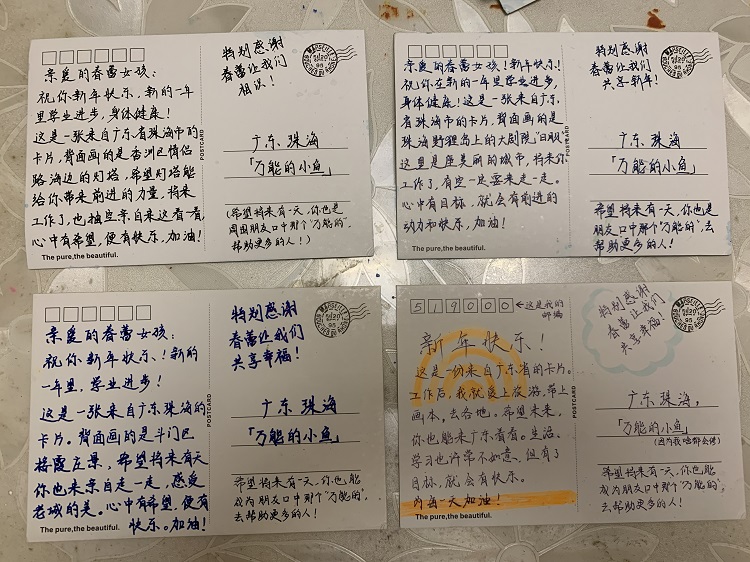 亲爱的春蕾女孩：
祝你新年快乐，新的一年
里学业进步，身体健康！
这是一张来自广东省珠海市的
卡片，背面画的是香洲区情侣
路海边的灯塔，希望灯塔能
给你带来前进的力量，将来
工作了，也抽空亲自来这看一看，
心中有希望，便有快乐，加油！
The pure,the beautiful.
POSTCARD
特别感谢
春蕾让我们
相识！
广东，珠海
「万能的小鱼」
（希望将来有一天，你也是
周围朋友口中那个“万能的”，
帮助更多的人！）
亲爱的春蕾女孩！新年快乐！
祝你在新的一年里学业进步，
身体健康！这是一张来自广东
省珠海市的卡片，背面画的是
珠海野狸岛上的大剧院“日月贝”，
这里是座美丽的城市，将来你
工作了，有空一定要来走一走。
心中有目标，就会有前进的
动力和快乐，加油！
The pure,the beautiful.
POSTCARD
特别感谢
春蕾让我们
共享新年！
广东，珠海
「万能的小鱼」
希望将来有一天，你也是
朋友口中那个“万能的”，去
帮助更多的人！
亲爱的春蕾女孩：
祝你新年快乐！新的
一年里，学业进步！
这是一张来自广东珠海的
卡片。背面画的是斗门区
接霞庄景，希望将来有天
你也来亲自走一走，感受
老城的美。心中有希望，便有
快乐。加油！
The pure,the beautiful.
POSTCARD
特别感谢
春蕾让我们
共享幸福！
广东 珠海
「万能的小鱼」
希望将来有一天，你也能
成为朋友口中那个“万能的”，
去帮助更多的人！
519000 ←这是我的
邮编
新年快乐！
这是一份来自广东省的卡片。
工作后，我就爱上旅游，带上
画本，去各地。希望未来，
你也能来广东看看。生活、
学习也许常不如意，但有了
目标，就会有快乐。
为每一天加油！
The pure,the beautiful.
POSTCARD
特别感谢
春蕾让我们
共享幸福！
广东 珠海，
「万能的小鱼」
（因为我啥都会修）
希望将来有一天，你也能
成为朋友口中那个“万能的”，
去帮助更多的人！